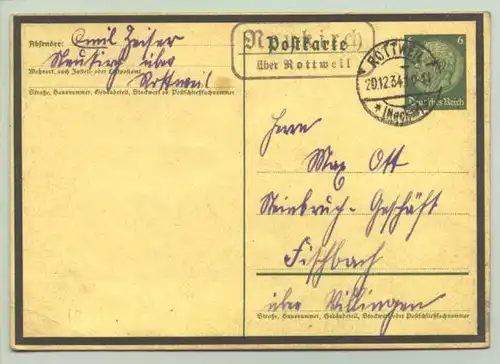 Absender: Emil Zeiser
Neukirch über
Wohnort, auch Zustell- oder Leitpostamt
Rottweil
Straße, Hausnummer, Gebäudeteil, Stockwerk od. Postschließfachnummer
Neukirch
Postkarte
über Rottweil
ROTTWEIL
20.12.34
6
6
Deutsches Reich
Herrn
Max Ott
Steinbruch-Geschäft
Fischbach
über Villingen
Straße, Hausnummer, Gebäudeteil, Stockwerk oder Postschließfachnummer